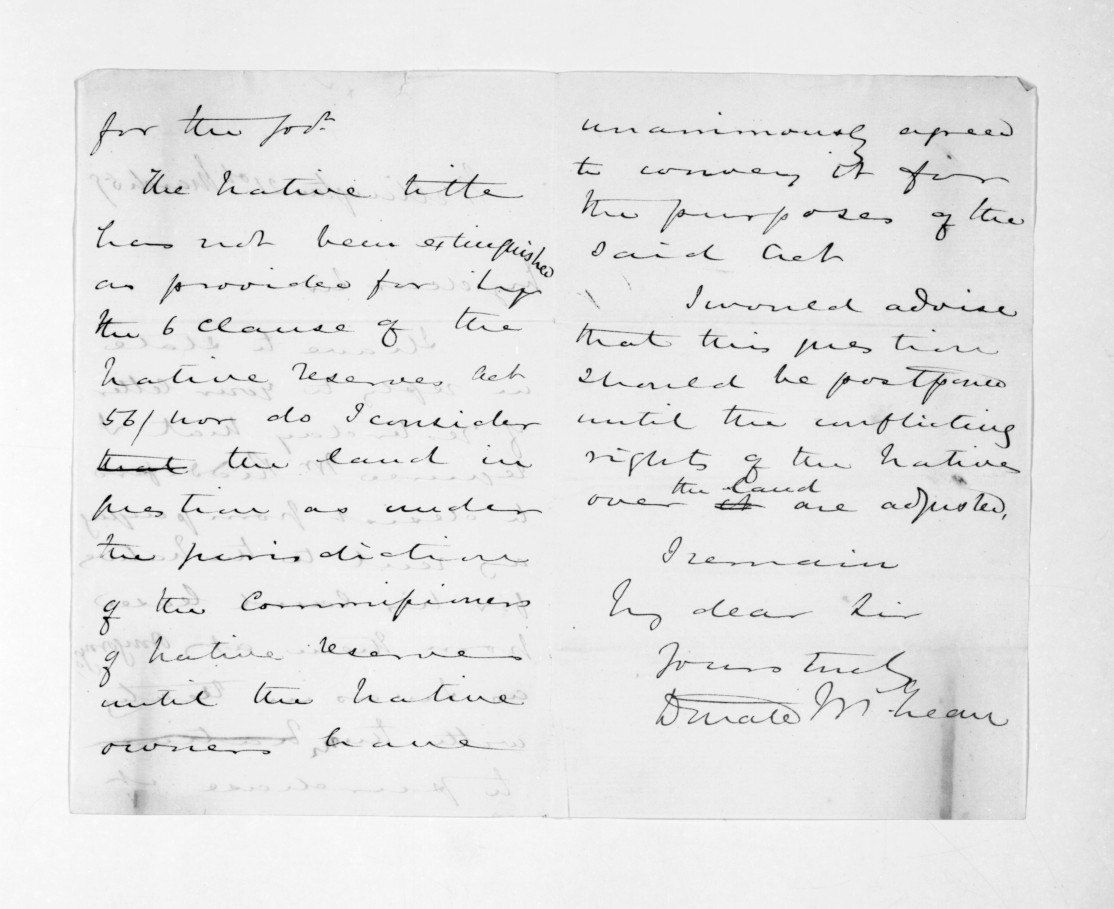 for the
The Native title
has not been extinguished
as provided for by
the 6 clause of the
Native reserves Act
56/ nor do I consider
that the land in
question as under
the jurisdiction
of the Commissioners
of Native reserves
until the Native
owners have
unanimously agreed
to convey it for
the purposes of the
said Act
I would advise
that this question
should be postponed
until the conflicting
rights of the Natives
over it the land are adjusted,
I remain
My dear Sir
Yours truly
Donald McLean